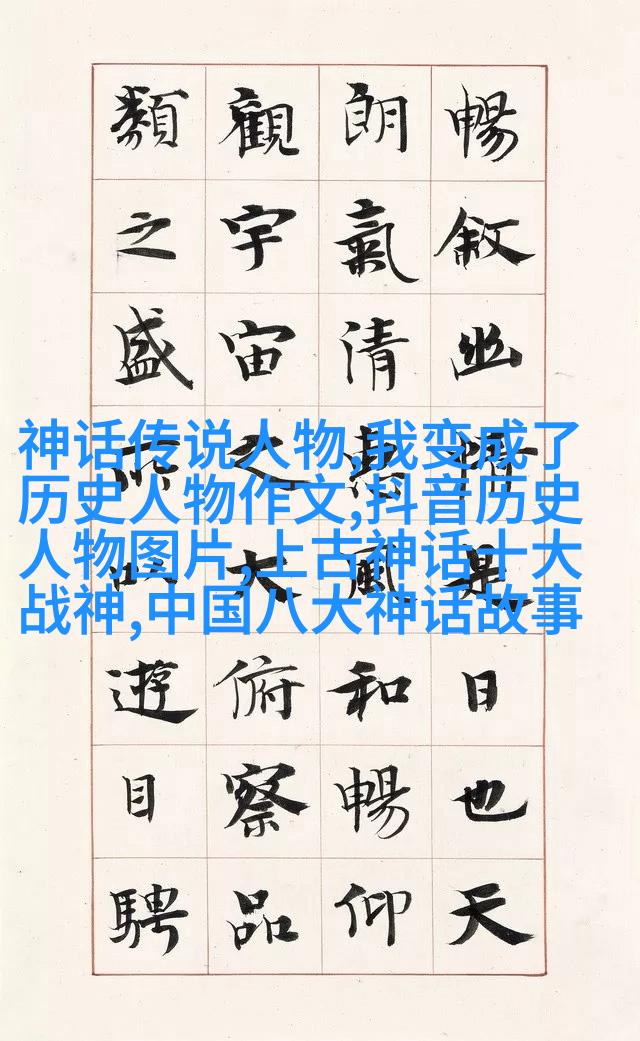 暢敘幽情是日也天
朗氣清惠風和暢仰
觀宇宙之大俯察品
類之盛所以遊目騁
神话传说人物,我变成了
历史人物作文,抖音历史
人物图片,上古神话十大
战神,中国八大神话故事